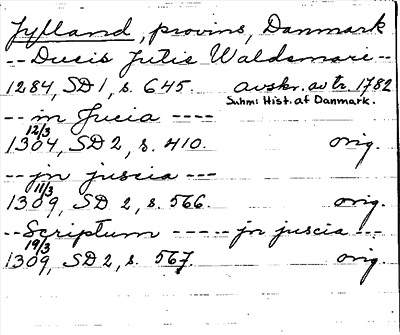 Jylland, provins, Danmark
-- Ducis Jutie Waldemari --
1284, SD 1, s. 645. avskr. av tr. 1782
Suhm: Hist. af Danmark.
-- in Jucia ----
12/3
1304, SD 2, s. 410. orig.
-- jn juscia ---
11/3
1309, SD 2, s. 566. orig.
-- Scriptum ----- jn juscia ---
19/3
1309, SD 2, s. 567. orig.